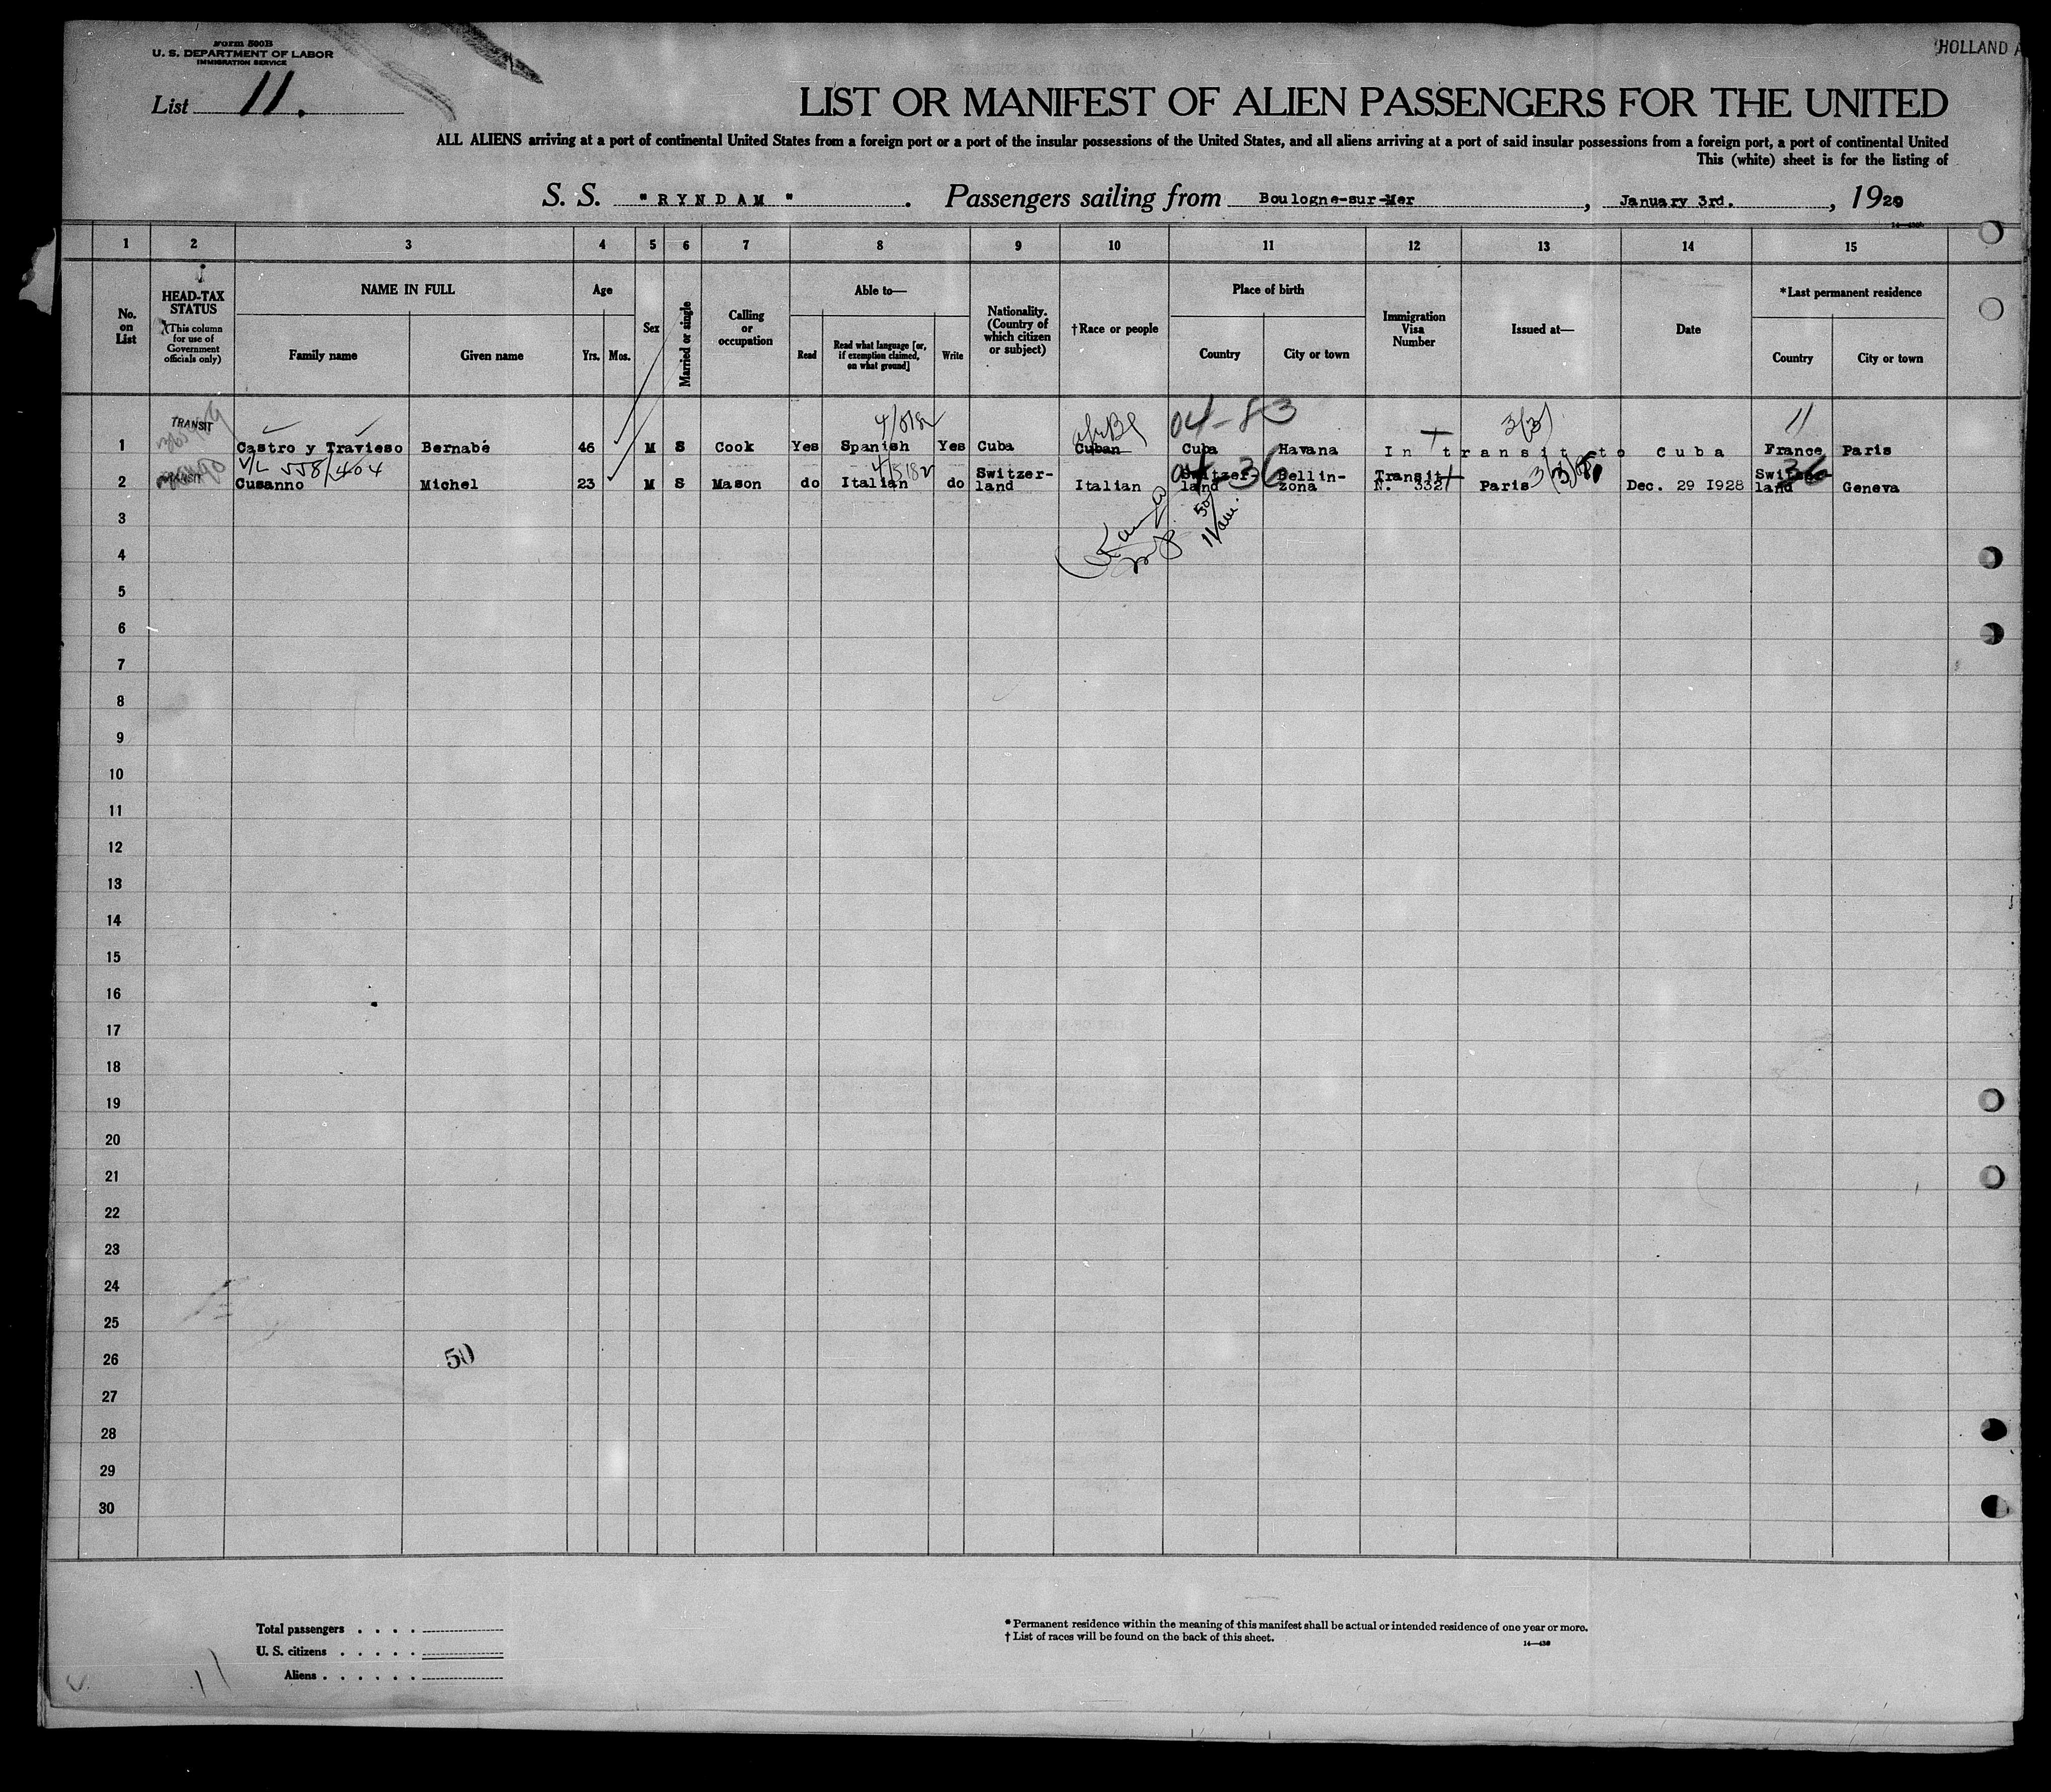 Form 500B
U. S. DEPARTMENT OF LABOR
IMMIGRATION SERVICE
HOLLAND A
List 11.
LIST OR MANIFEST OF ALIEN PASSENGERS FOR THE UNITED
ALL ALIENS arriving at a port of continental United States from a foreign port or a port of the insular possessions of the United States, and all aliens arriving at a port of said insular possessions from a foreign port, a port of continental United
This (white) sheet is for the listing of
S. S. "RYNDAM". Passengers sailing from Boulogne-sur-Mer, January 3rd., 1929
1 2 3 4 5 6 7 8 9 10 11 12 13 14 15
No. on List
HEAD-TAX STATUS
(This column for use of Government officials only)
NAME IN FULL
Family name Given name
Age
Yrs. Mos.
Sex
Married or single
Calling or occupation
Able to—
Read
Read what language [or, if exemption claimed, on what ground]
Write
Nationality. (Country of which citizen or subject)
†Race or people
Place of birth
Country City or town
Immigration Visa Number
Issued at—
Date
*Last permanent residence
Country City or town
04-83 3(3) 11
TRANSIT
1 Castro y Travieso Bernabé 46 M S Cook Yes Spanish Yes Cuba Cuban Cuba Havana In transit to Cuba France Paris
V/L 558/404
2 Cusanno Michel 23 M S Mason do Italian do Switzer-land Italian Switzer-land Bellin-zona Transit N. 332 Paris Dec. 29 1928 Switzer-land Geneva
36
3
4
5
6
7
8
9
10
11
12
13
14
15
16
17
18
19
20
21
22
23
24
25
26
50
27
28
29
30
Total passengers . . . .
U. S. citizens . . . . .
Aliens . . . . . .
* Permanent residence within the meaning of this manifest shall be actual or intended residence of one year or more.
† List of races will be found on the back of this sheet.
14—430